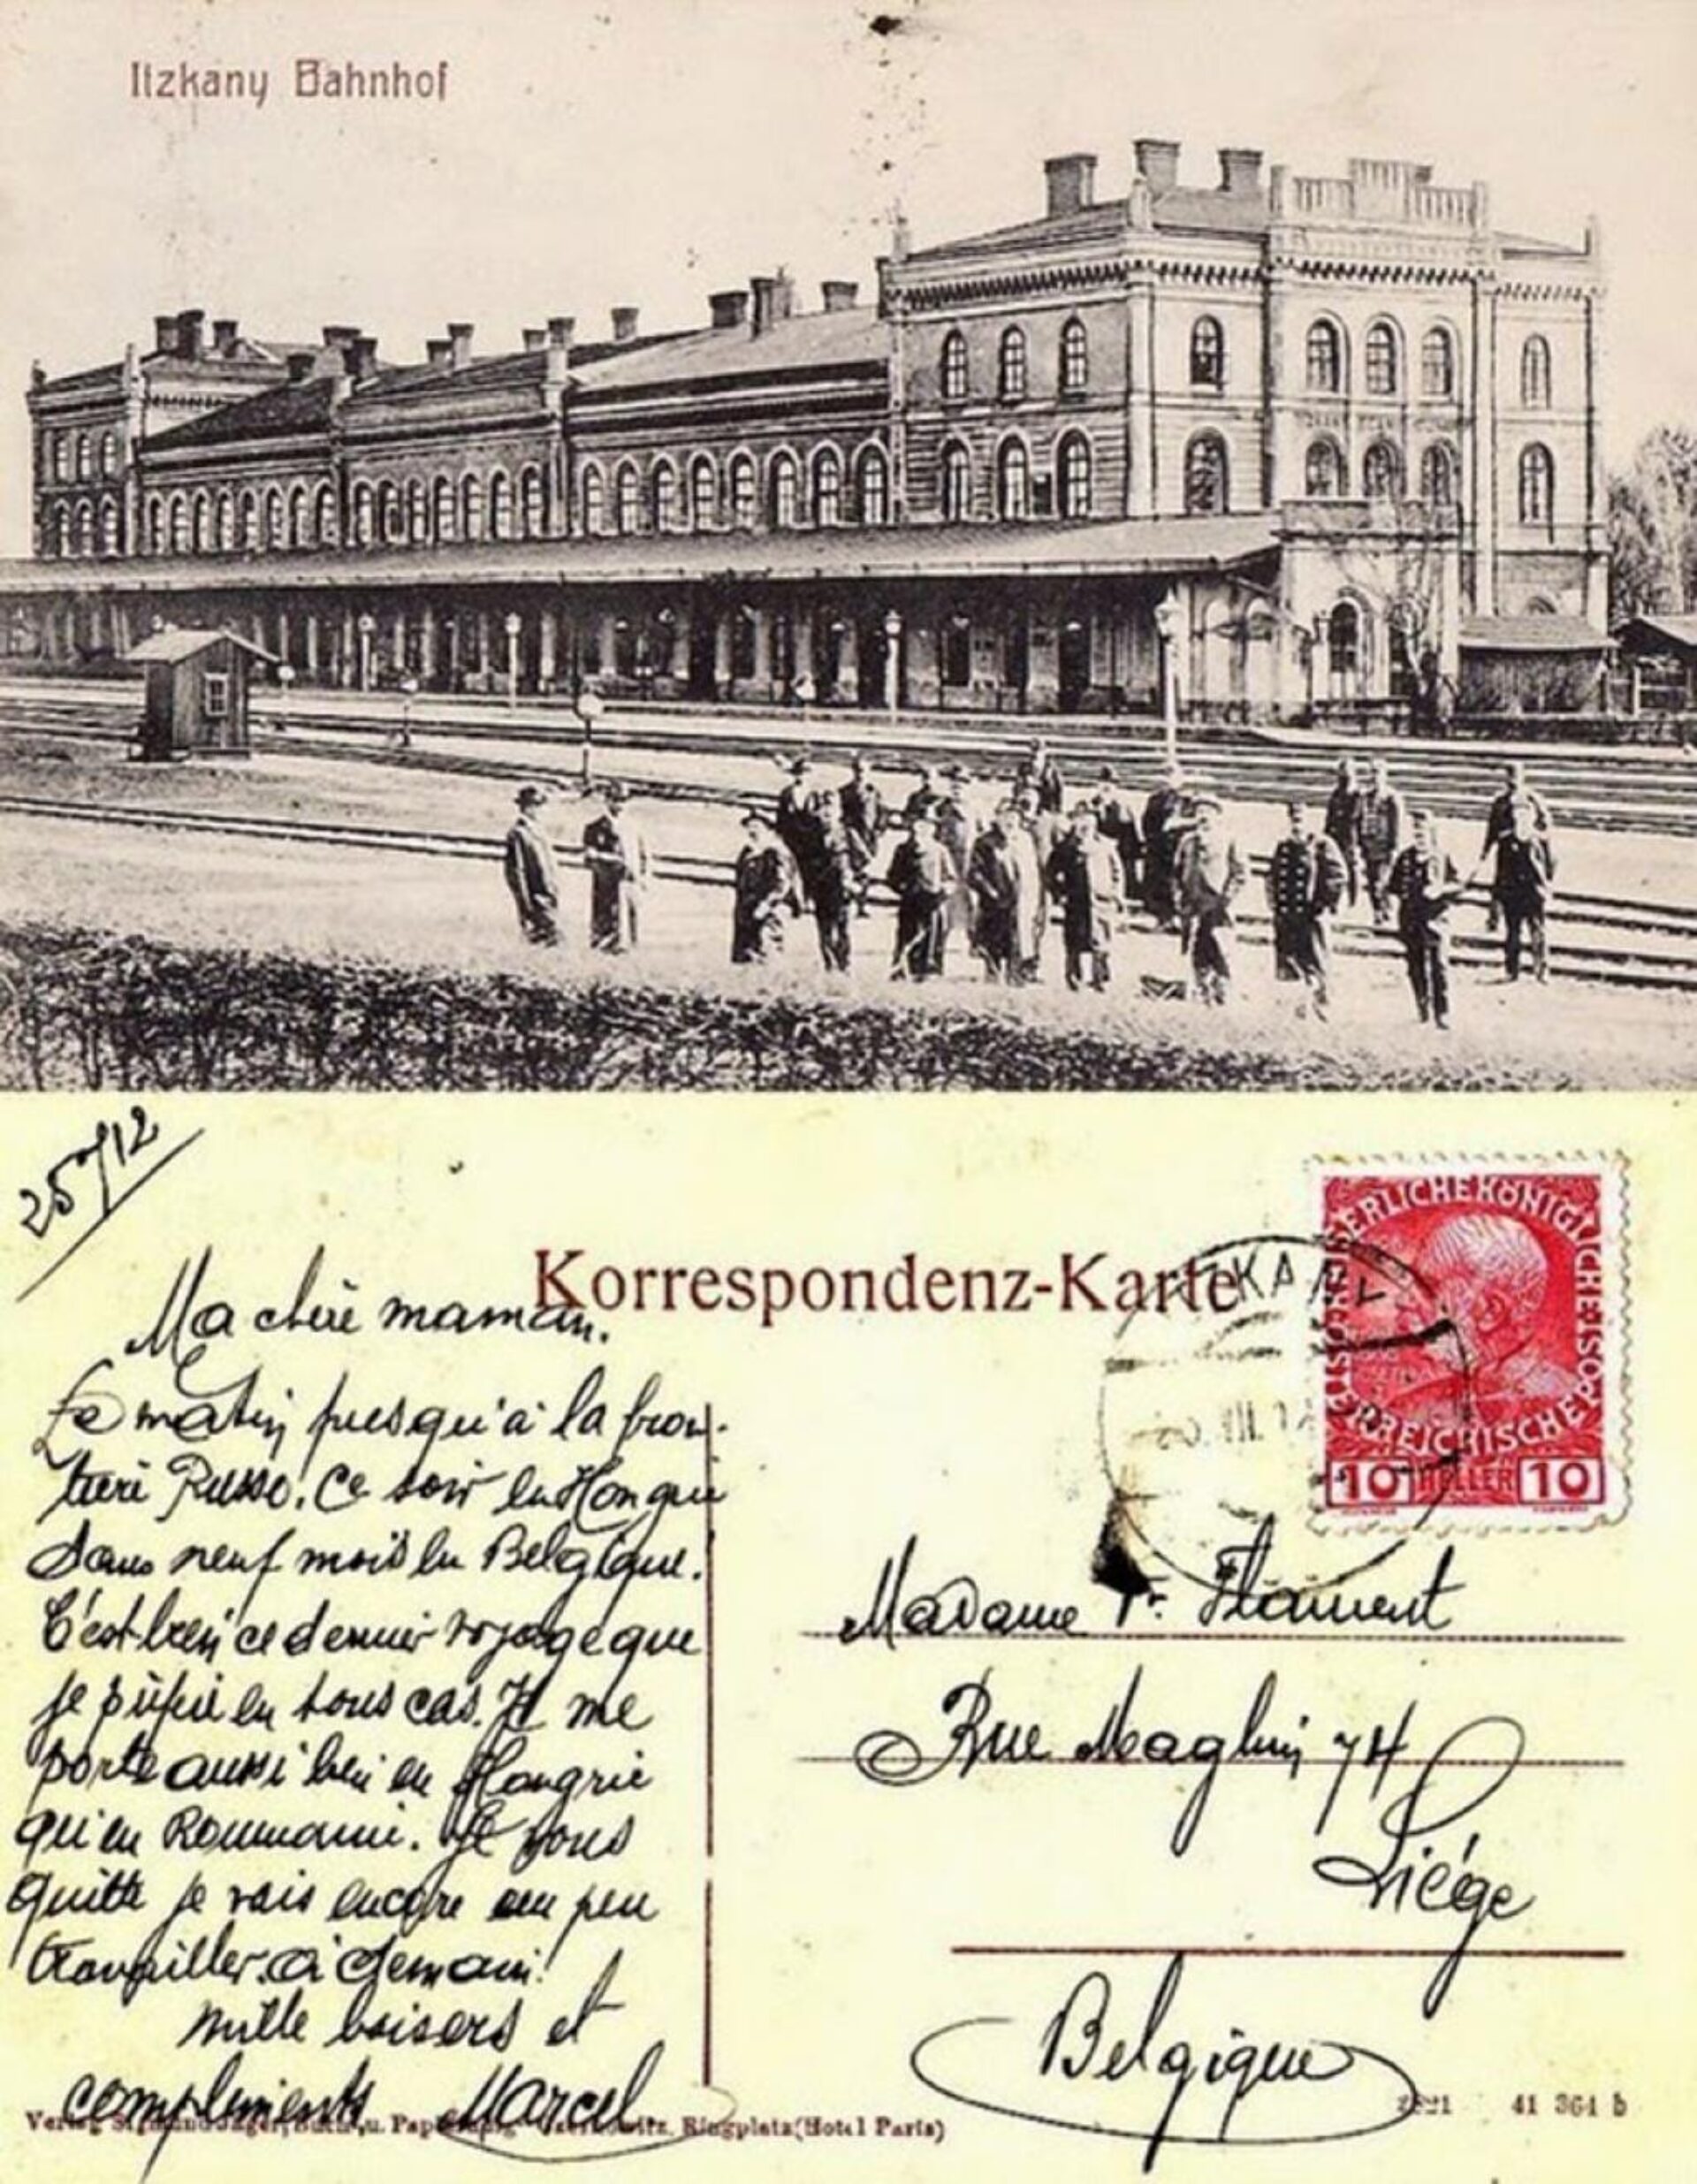 Itzkany Bahnhof
25/7/12
Korrespondenz-Karte
KAISERLICHE KÖNIGLICHE ÖSTERREICHISCHE POST
10 HELLER 10
Ma chère maman.
Ce matin presqu'à la fron-
tière Russe. Ce soir en Hongrie
Dans neuf mois en Belgique.
C'est bien ce dernier voyage que
je préfère en tous cas. Il me
porte aussi bien en Hongrie
qu'en Roumanie. Je vous
quitte je vais encore un peu
travailler. à demain!
mille baisers et
compliments Marcel
Madame Fr. Flament
Rue Maghin 74
Liége
Belgique
Verlag Sigmund Jäger, Buch u. Czernowitz, Ringplatz (Hotel Paris)
41 364 b